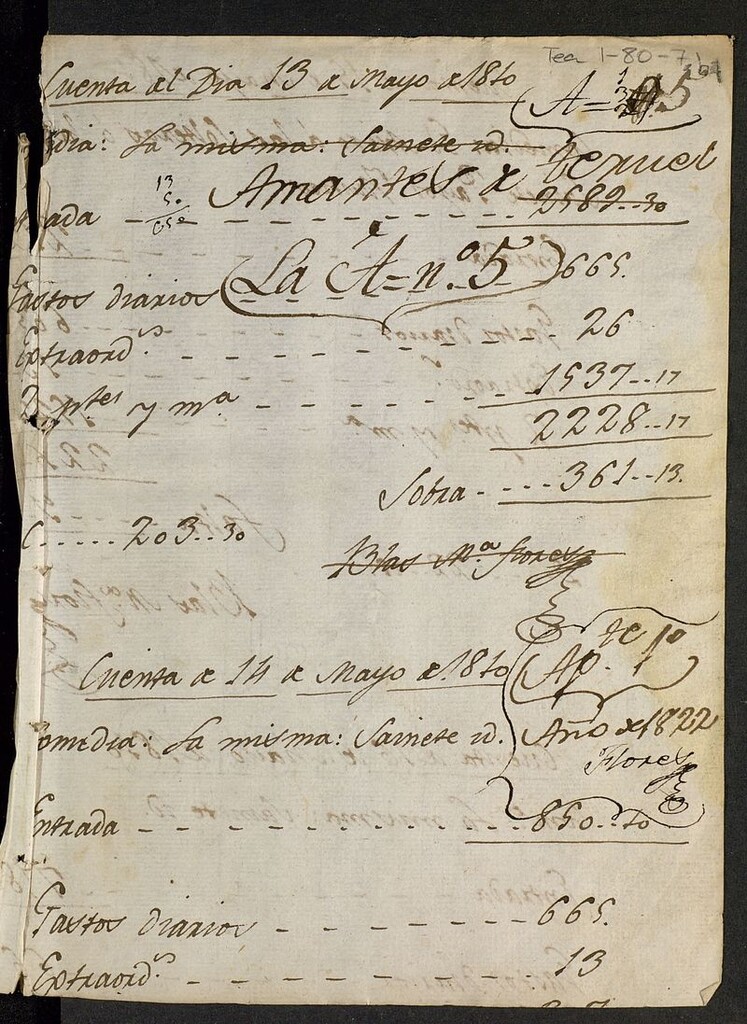 Tea 1-80-7
Cuenta del Dia 13 de Mayo de 1810
A=
dia: La misma: Sainete id.
Amantes de teruel
ada - - - - - - 2589..30
La A=n.º 5
Gastos diarios 665.
Extraord.s - - - - - 26
D. ptes y m.a - - - - - 1537..17
2228..17
Sobra - - - - 361..13.
203..30
Blas M.a florez
Cuenta de 14 de Mayo de 1810
Ap.te 1º
omedia: La misma: Sainete id.
Año de 1822
Florez
Entrada - - - - - - - - 850..10
Gastos diarios - - - - - - 665.
Extraord.s - - - - - - - 13